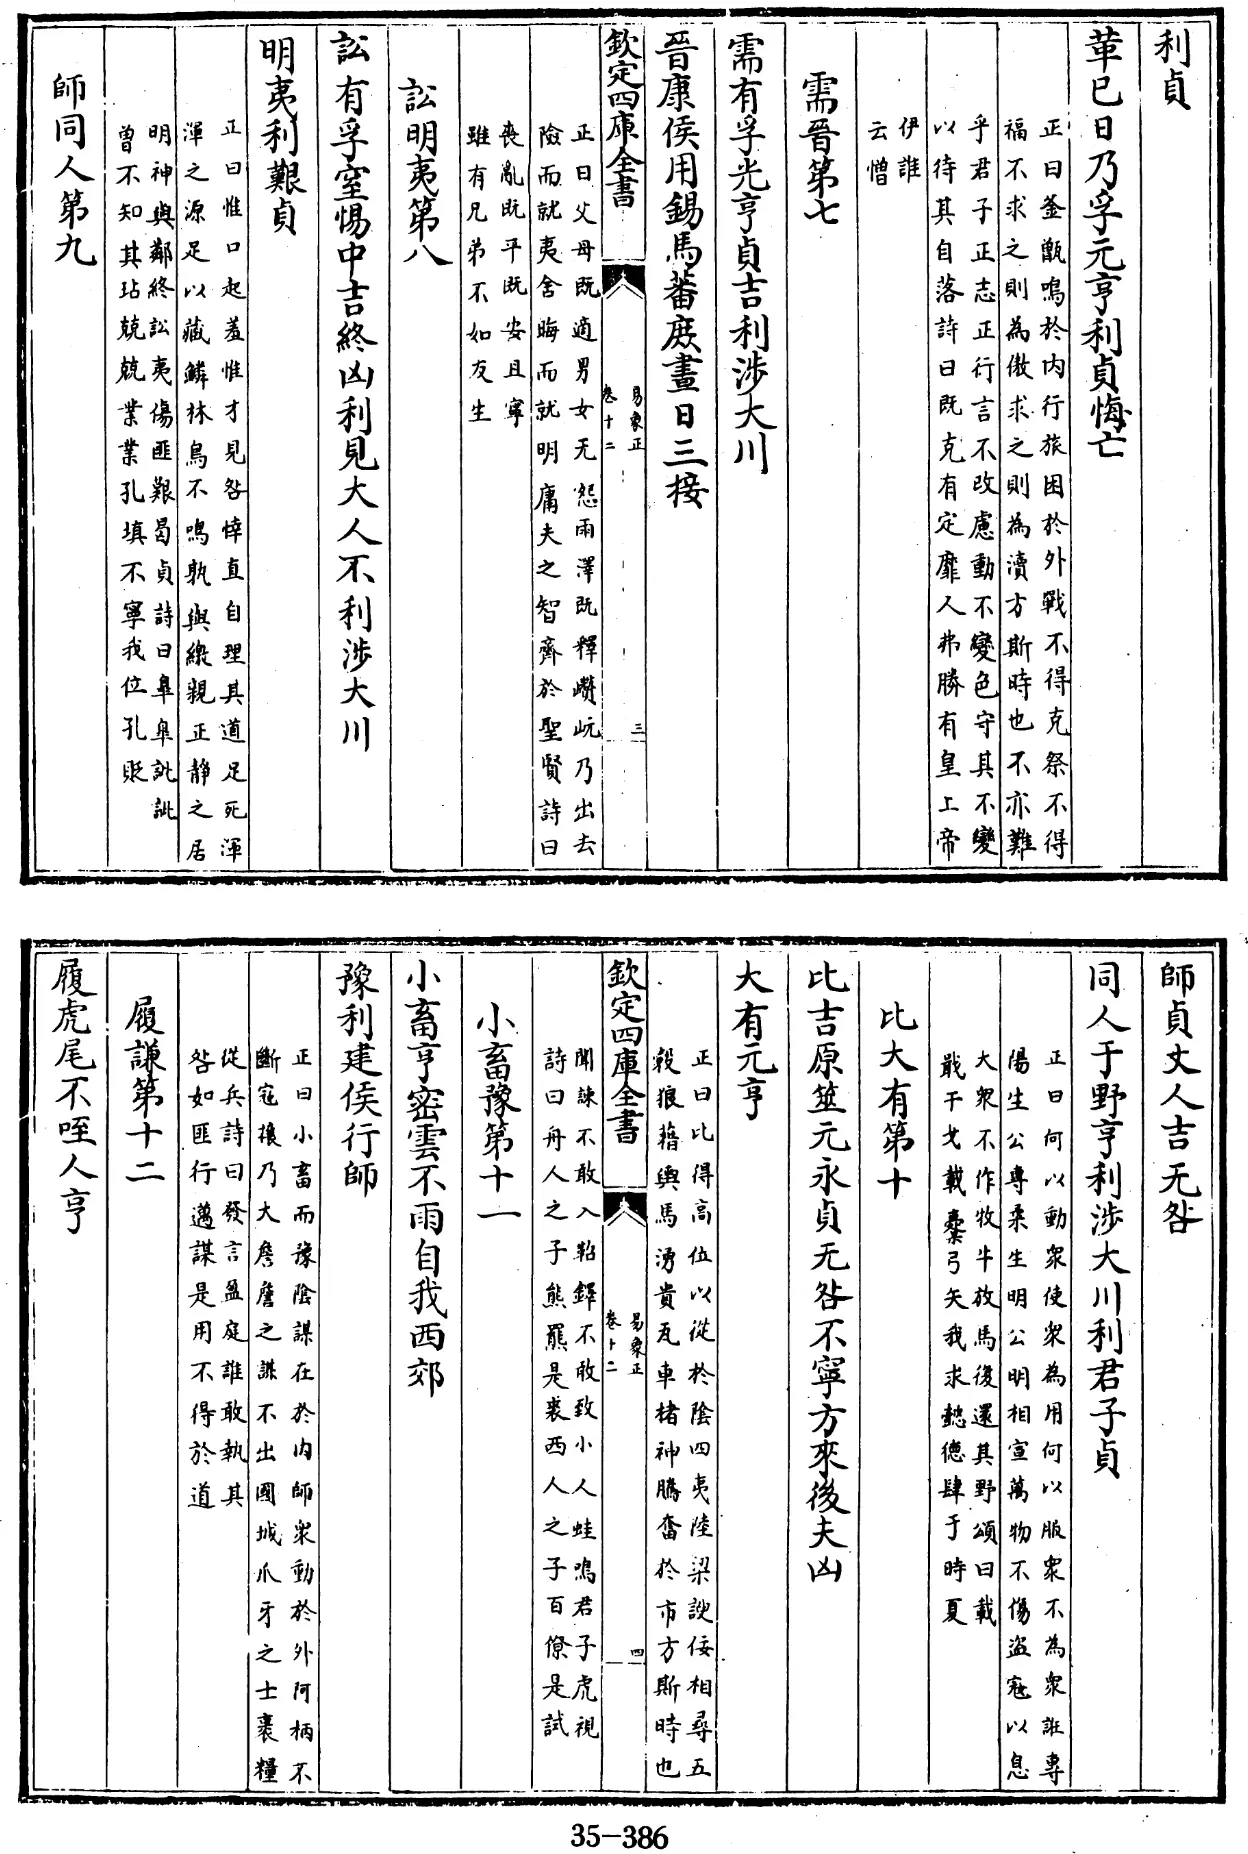 利貞
革已日乃孚元亨利貞悔亡
正曰釜甑鳴於内行旅困於外戰不得克祭不得
福不求之則為傲求之則為瀆方斯時也不亦難
乎君子正志正行言不改慮動不變色守其不變
以待其自落詩曰既克有定靡人弗勝有皇上帝
伊誰
云憎
需晉第七
需有孚光亨貞吉利涉大川
晉康侯用錫馬蕃庶晝日三接
欽定四庫全書
易象正
卷十二
三
正曰父母既適男女无怨雨澤既釋巑岏乃出去
險而就夷舍晦而就明庸夫之智齊於聖賢詩曰
喪亂既平既安且寧
雖有兄弟不如友生
訟明夷第八
訟有孚窒惕中吉終凶利見大人不利涉大川
明夷利艱貞
正曰惟口起羞惟才見咎悻直自理其道足死渾
渾之源足以藏鱗林鳥不鳴孰與纔親正静之居
明神與鄰終訟夷傷匪艱曷貞詩曰臯臯訿訿
曾不知其玷兢兢業業孔填不寧我位孔貶
師同人第九
師貞丈人吉无咎
同人于野亨利涉大川利君子貞
正曰何以動衆使衆為用何以服衆不為衆誰專
陽生公專柔生明公明相宣萬物不傷盜寇以息
大衆不作牧牛放馬後還其野頌曰載
戢干戈載櫜弓矢我求懿德肆于時夏
比大有第十
比吉原筮元永貞无咎不寧方來後夫凶
大有元亨
正曰比得高位以從於陰四夷陸梁諛佞相尋五
穀狼藉輿馬湧貴瓦車楮神騰奮於市方斯時也
欽定四庫全書
易象正
卷十二
四
聞諫不敢入鞀鐸不敢致小人蛙鳴君子虎視
詩曰舟人之子熊羆是裘西人之子百僚是試
小畜豫第十一
小畜亨密雲不雨自我西郊
豫利建侯行師
正曰小畜而豫陰謀在於内師衆動於外阿柄不
斷寇攘乃大詹詹之謀不出國城爪牙之士裹糧
從兵詩曰發言盈庭誰敢執其
咎如匪行邁謀是用不得於道
履謙第十二
履虎尾不咥人亨
35-386